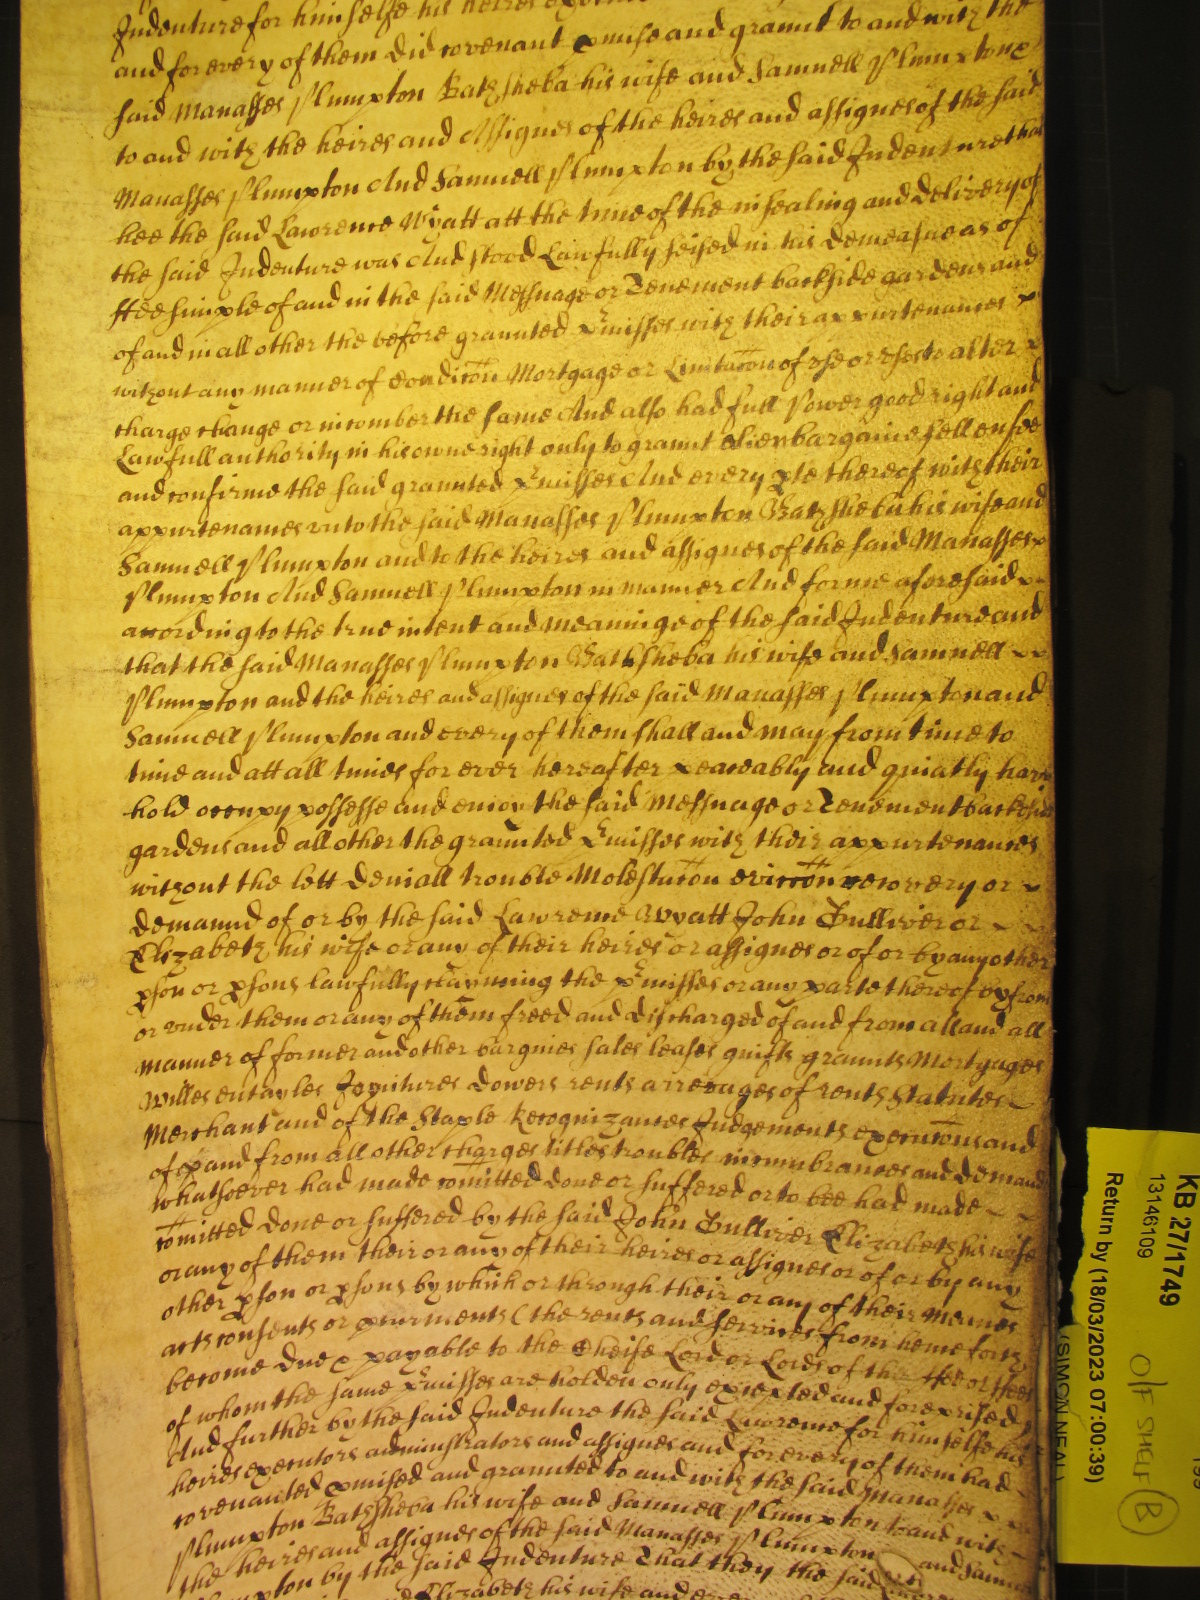 Indenture for himselfe his heires
and for every of them did covenant pmise and graunt to and with the
said Manasses Plumpton Bathsheba his wife and Samuell Plumpton
to and with the heires and Assignes of the heires and assignes of the said
Manasses Plumpton And Samuell Plumpton by the said Indenture that
hee the said Lawrence Wyatt att the time of the insealing and delivery of
the said Indenture was And stood Lawfully seised in his demeasne as of
ffee simple of and in the said Messuage or Tenement backside gardens and
of and in all other the before graunted pmisses with their appurtenances
without any manner of Condicon Mortgage or Limitacon of Vse or Vses to alter
charge change or incomber the same And also had full Power good right and
Lawfull authority in his owne right only to graunt alien bargaine sell enfeoffe
and confirme the said graunted pmisses And every pte thereof with their
appurtenances vnto the said Manasses Plumpton Bathsheba his wife and
Samuell Plumpton and to the heires and assignes of the said Manasses
Plumpton And Samuell Plumpton in manner And forme aforesaid
according to the true intent and meaninge of the said Indenture and
that the said Manasses Plumpton Bathsheba his wife and Samuell
Plumpton and the heires and assignes of the said Manasses Plumpton and
Samuell Plumpton and every of them shall and may from time to
time and att all times for ever hereafter peaceably and quiatly have
hold occupy possesse and enioy the said Messuage or Tenement backside
gardens and all other the graunted pmisses with their appurtenances
without the lett deniall trouble Molestacon eviccon recovery or
demaund of or by the said Lawrence Wyatt John Gulliver or
Elizabeth his wife or any of their heires or assignes or of or by any other
pson or psons lawfully clayming the pmisses or any parte thereof by from
or vnder them or any of them freed and discharged of and from all and all
manner of former and other bargaies sales leases guifts graunts Mortgages
Willes entayles Joyntures dowers rents arrerages of rents Statutes
Merchant and of the Staple Recognizances Judgements execucons and
of and from all other charges titles troubles incumbrances and demand
whatsoever had made comitted done or suffered or to bee had made
comitted done or suffered by the said John Gulliver Elizabeth his wife
or any of them their or any of their heires or assignes or of or by any
other pson or psons by which or through their or any of their Meanes
acts consents or pcurments (the rents and services from henceforth
become due & payable to the Cheife Lord or Lords of the ffee or ffees
of whom the same pmisses are holden only excepted and foreprised
And further by the said Indenture the said Lawrence for himselfe his
heires executors administrators and assignes and for every of them had
covenanted pmised and graunted to and with the said Manasses
Plumpton Bathsheba his wife and Samuell Plumpton to and with
the heires and assignes of the said Manasses Plumpton and Samuell
by the said Indenture That they the said
Elizabeth his wife and
KB 27/1749
13146109
Return by (18/03/2023 07:00:39)
(SIMON NEAL)
O/F SHELF B